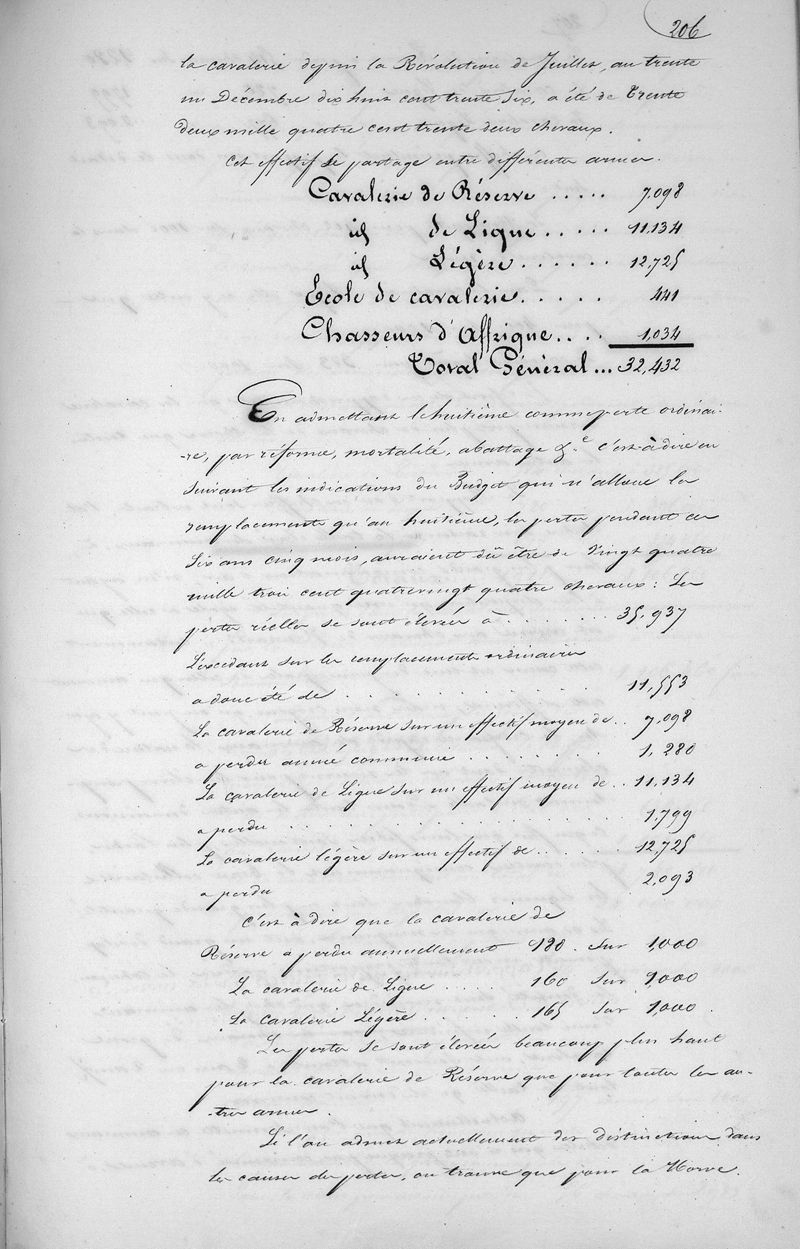 206
la cavalerie depuis la Révolution de Juillet, au trente
un Décembre dix huit cent trente six, a été de Trente
deux mille quatre cent trente deux chevaux.
Cet effectif se partage entre différentes armes.
Cavalerie de Réserve ..... 7.098
id de Ligne ..... 11.134
id Légère ...... 12.725
Ecole de cavalerie ..... 441
Chasseurs d'Affrique .... 1,034
Total Général ... 32,432
En admettant le huitième comme perte ordinai-
-re, par réforme, mortalité, abattage &.c c'est-à dire en
suivant les indications du Budget qui n'alloue les
remplacements qu'au huitième, les pertes pendant ces
six ans cinq mois, auraient dû être de Vingt quatre
mille trois cent quatrevingt quatre chevaux: Les
pertes réelles se sont élevées à ....... 35,937
L'excédant sur les remplacements ordinaires
a donc été de ........ 11,553
La cavalerie de Réserve sur un effectif moyen de .. 7,098
a perdu année commune ....... 1,280
La cavalerie de Ligne sur un effectif moyen de .. 11,134
a perdu ........ 1,799
La cavalerie légère sur un effectif de .... 12,725
a perdu 2,093
C'est à dire que la cavalerie de
Réserve a perdu annuellement 180. sur 1,000
La cavalerie de Ligne .... 160 sur 1000
La cavalerie Légère ..... 165 sur 1,000.
Les pertes se sont élevées beaucoup plus haut
pour la cavalerie de Réserve que pour toutes les au-
-tres armes.
Si l'on admet actuellement des distinctions dans
les causes des pertes, on trouve que pour la Morve.